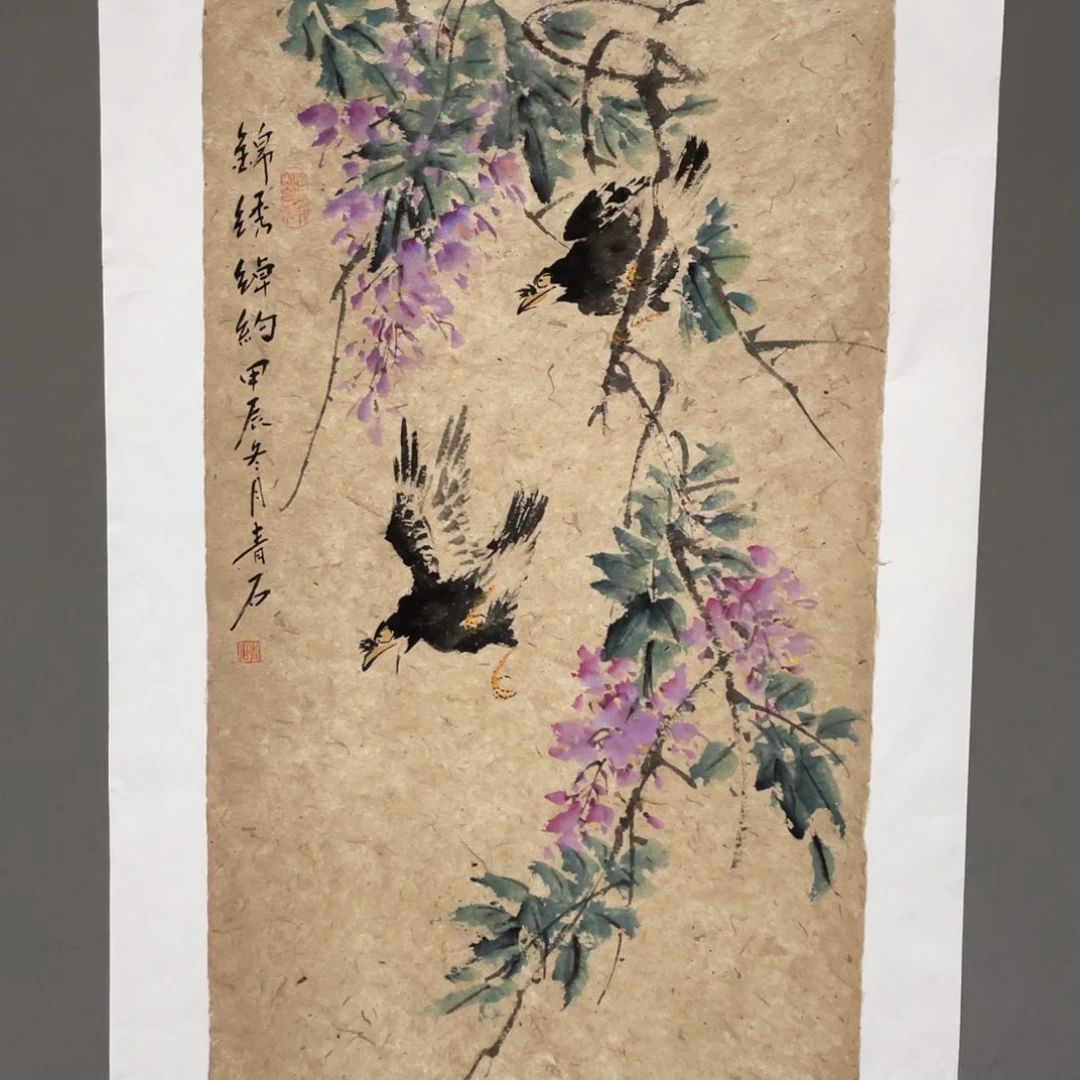 錦綉綽約甲辰冬月青石